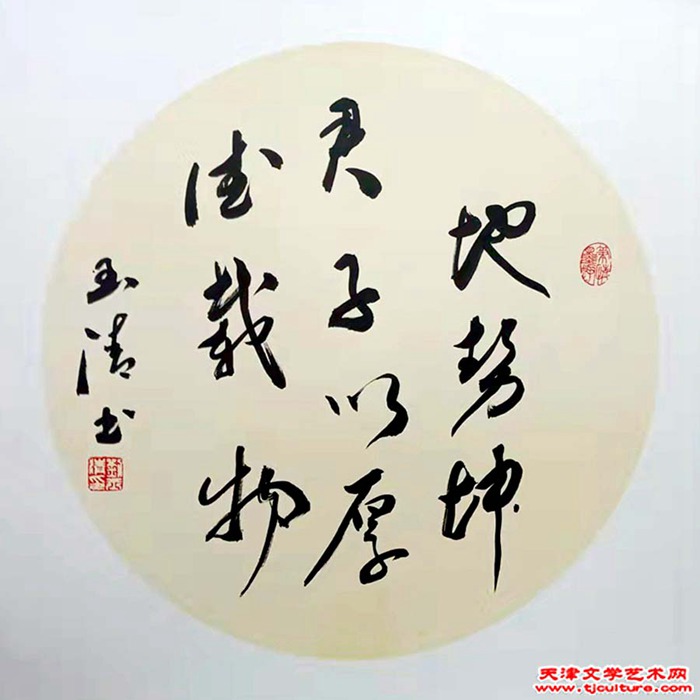 地势坤
君子以厚
德载物
玉清书
天津文学艺术网
www.tjculture.com